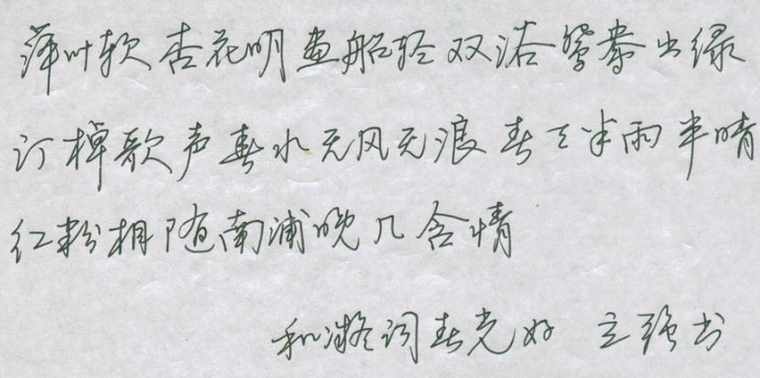 萍叶软杏花明画船轻双浴鸳鸯出绿
汀棹歌声春水无风无浪春天半雨半晴
红粉相随南浦晚几含情
和凝词春光好 立强书